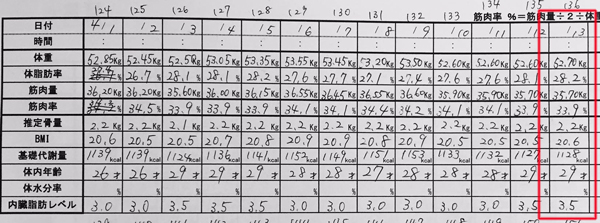 124 125 126 127 128 129 130 131 132 133 134 135 136
筋肉率 %=筋肉量÷2÷体重
日付 4/1 1/2 1/3 1/4 1/5 1/6 1/7 1/8 1/9 1/10 1/11 1/12 1/13
時間 : : : : : : : : : : : : :
体重 52.85Kg 52.45Kg 52.50Kg 53.05Kg 53.35Kg 53.55Kg 53.45Kg 53.20Kg 53.50Kg 52.60Kg 52.60Kg 52.60Kg 52.70Kg
体脂肪率 26.7% 28.1% 28.1% 28.2% 27.6% 27.7% 27.1% 27.4% 27.6% 27.6% 28.1% 28.2%
筋肉量 36.20Kg 36.20Kg 35.60Kg 36.00Kg 36.15Kg 36.55Kg 36.45Kg 36.55Kg 36.60Kg 35.90Kg 35.90Kg 35.70Kg 35.70Kg
筋肉率 34.5% 33.9% 33.9% 33.9% 34.1% 34.1% 34.4% 34.2% 34.1% 34.1% 33.9% 33.9%
推定骨量 2.2Kg 2.2Kg 2.1Kg 2.2Kg 2.2Kg 2.2Kg 2.2Kg 2.2Kg 2.2Kg 2.2Kg 2.2Kg 2.2Kg 2.2Kg
BMI 20.6 20.5 20.5 20.7 20.8 20.9 20.9 20.8 20.9 20.5 20.5 20.5 20.6
基礎代謝量 1139kcal 1139kcal 1124kcal 1136kcal 1141kcal 1152kcal 1149kcal 1151kcal 1153kcal 1133kcal 1132kcal 1127kcal 1128kcal
体内年齢 26才 26才 29才 29才 29才 28才 28才 27才 28才 28才 28才 29才 29才
体水分率 % % % % % % % % % % % % %
内臓脂肪レベル 3.0 3.0 3.5 3.5 3.5 3.5 3.5 3.0 3.5 3.0 3.0 3.5 3.5